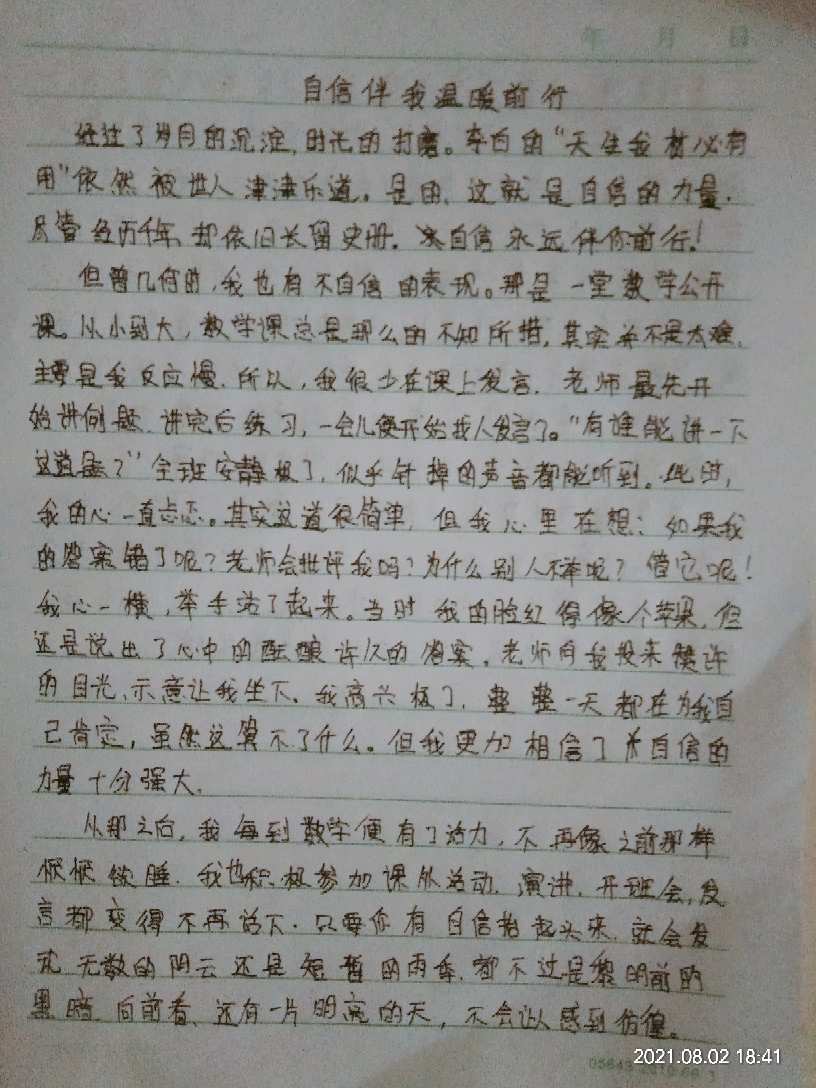 年 月 日
自信伴我温暖前行
经过了岁月的沉淀,时光的打磨。李白的“天生我材必有
用”依然被世人津津乐道。是的,这就是自信的力量.
尽管经历千年,却依旧长留史册.自信永远伴你前行!
但曾几何时,我也有不自信的表现。那是一堂数学公开
课。从小到大,数学课总是那么的不知所措,其实并不是太难,
主要是我反应慢.所以,我很少在课上发言.老师最先开
始讲例题.讲完后练习,一会儿便开始找人发言了。“有谁能讲一下
这道题?”全班安静极了,似乎针掉的声音都能听到。此时,
我的心一直忐忑。其实这道很简单,但我心里在想:如果我
的答案错了呢?老师会批评我吗?为什么别人不举呢?管它呢!
我心一横,举手站了起来。当时我的脸红得像个苹果,但
还是说出了心中的酝酿许久的答案.老师向我投来赞许
的目光,示意让我坐下.我高兴极了,整整一天都在为我自
己肯定,虽然这算不了什么。但我更加相信了自信的
力量十分强大.
从那之后,我每到数学便有了活力,不再像之前那样
恹恹欲睡.我也积极参加课外活动.演讲.开班会,发
言都变得不再话下.只要你有自信抬起头来,就会发
现无数的阴云还是短暂的雨季,都不过是黎明前的
黑暗.向前看、还有一片明亮的天,不会让人感到彷徨。
2021.08.02 18:41